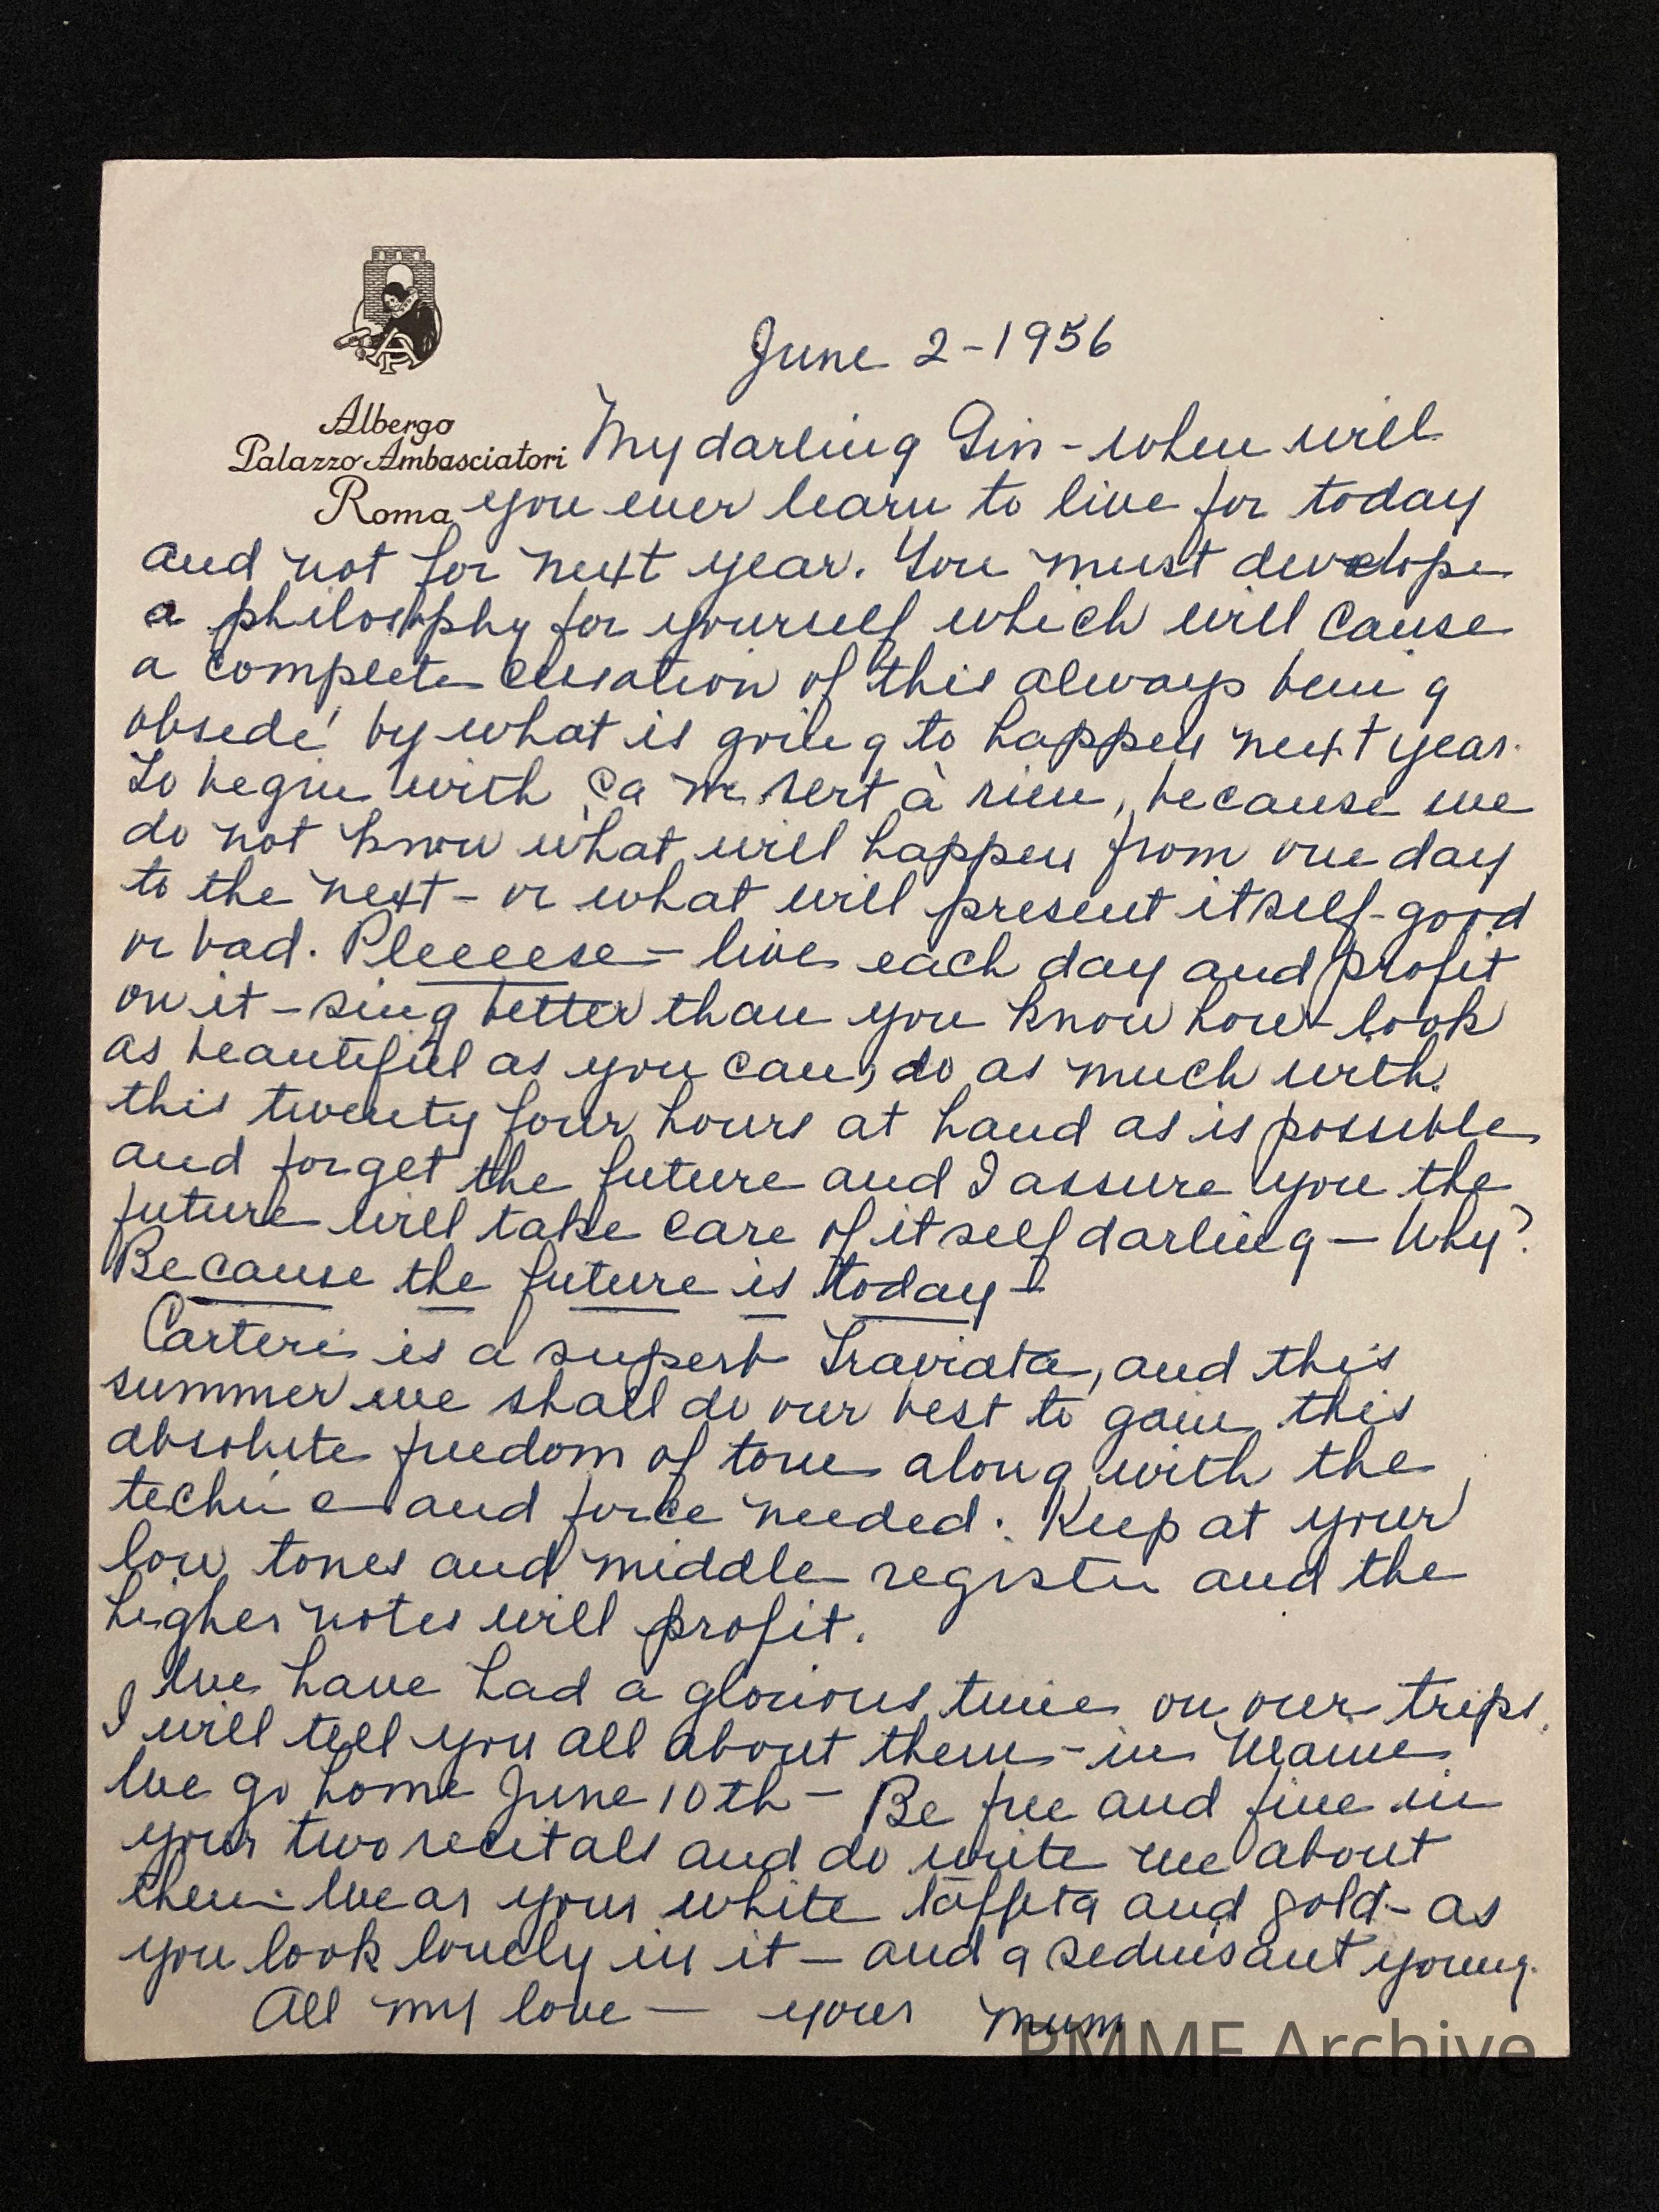 Albergo
Palazzo Ambasciatori
Roma
June 2-1956
My darling Gin - when will
you ever learn to live for today
and not for next year. You must develope
a philosophy for yourself which will cause
a complete cessation of this always being
obsedé by what is going to happen next year.
To begin with ça ne sert à rien, because we
do not know what will happen from one day
to the next - or what will present itself - good
or bad. Pleeeese - live each day and profit
on it - sing better than you know how - look
as beautiful as you can, do as much with
this twenty four hours at hand as is possible
and forget the future and I assure you the
future will take care of itself darling - Why?
Because the future is today -
Carteri is a superb Traviata, and this
summer we shall do our best to gain this
absolute freedom of tone along with the
and force needed. Keep at your
low tones and middle register and the
higher notes will profit.
We have had a glorious time on our trips.
I will tell you all about them - in Maine.
We go home June 10th - Be free and fine in
your two recitals and do write me about
them. Wear your white taffeta and gold - as
you look lovely in it - and a seduisant young.
All my love - your Mum
PMMF Archive